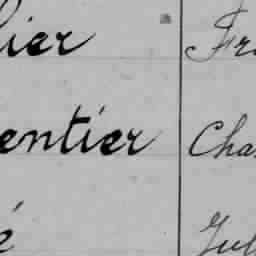 lier Fra
entier Cha
é Jul